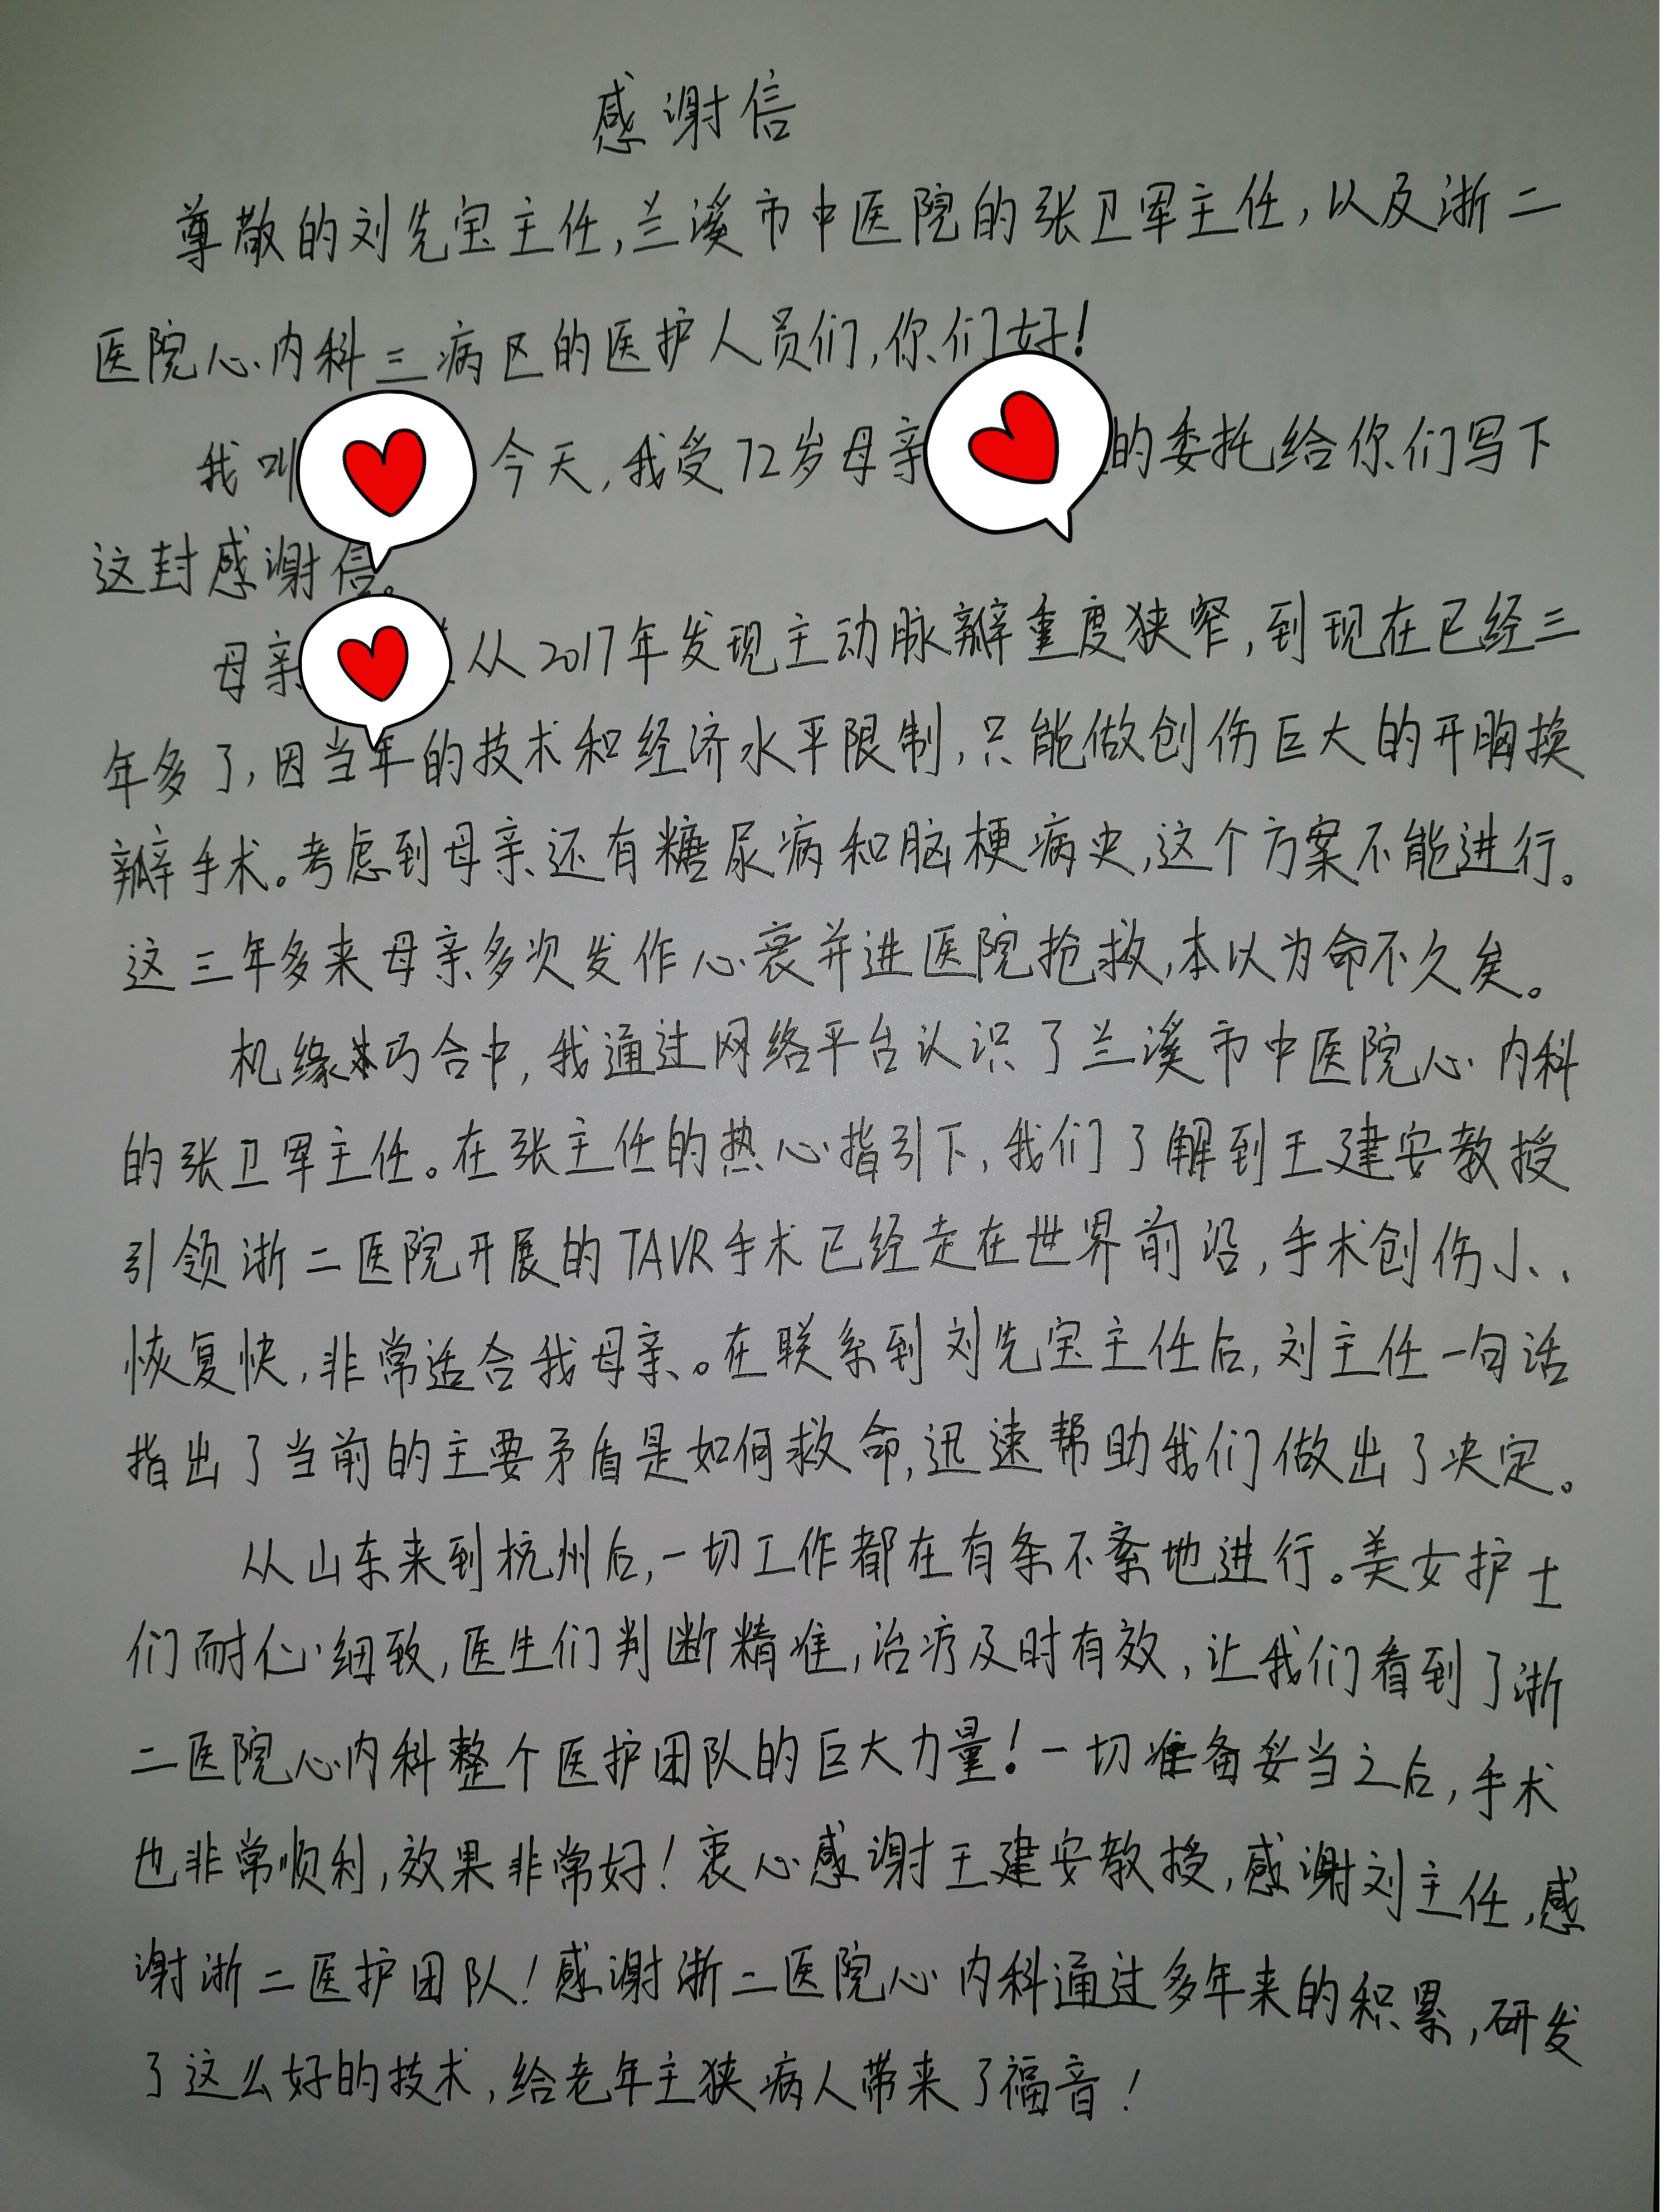 感谢信
尊敬的刘先宝主任,兰溪市中医院的张卫军主任,以及浙二
医院心内科三病区的医护人员们,你们好!
我叫 今天,我受72岁母亲 的委托给你们写下
这封感谢信。
母亲 从2017年发现主动脉瓣重度狭窄,到现在已经三
年多了,因当年的技术和经济水平限制,只能做创伤巨大的开胸换
瓣手术。考虑到母亲还有糖尿病和脑梗病史,这个方案不能进行。
这三年多来母亲多次发作心衰并进医院抢救,本以为命不久矣。
机缘巧合中,我通过网络平台认识了兰溪市中医院心内科
的张卫军主任。在张主任的热心指引下,我们了解到王建安教授
引领浙二医院开展的TAVR手术已经走在世界前沿,手术创伤小、
恢复快,非常适合我母亲。在联系到刘先宝主任后,刘主任一句话
指出了当前的主要矛盾是如何救命,迅速帮助我们做出了决定。
从山东来到杭州后,一切工作都在有条不紊地进行。美女护士
们耐心细致,医生们判断精准,治疗及时有效,让我们看到了浙
二医院心内科整个医护团队的巨大力量!一切准备妥当之后,手术
也非常顺利,效果非常好!衷心感谢王建安教授,感谢刘主任,感
谢浙二医护团队!感谢浙二医院心内科通过多年来的积累,研发
了这么好的技术,给老年主狭病人带来了福音!